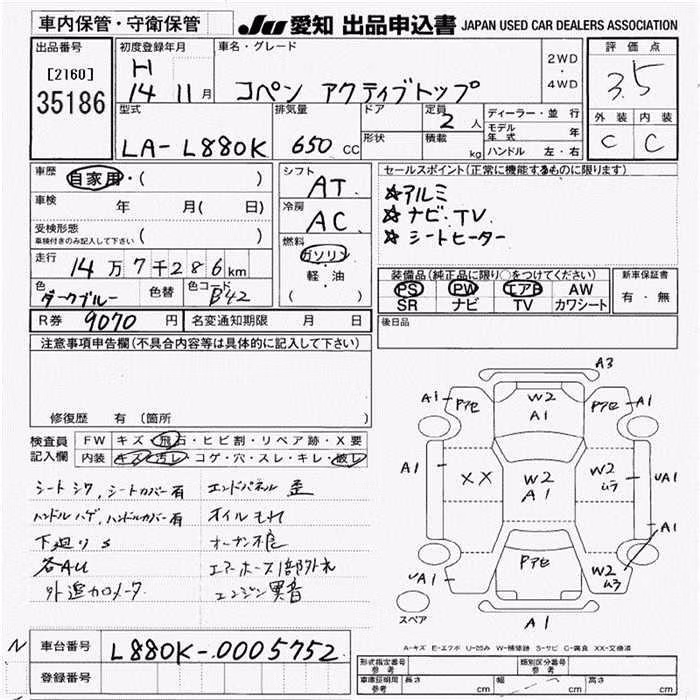 車内保管・守衛保管
JU 愛知 出品申込書 JAPAN USED CAR DEALERS ASSOCIATION
出品番号
[2160]
35186
初度登録年月
H
14 11 月
車名・グレード
コペン アクティブトップ
2WD
・
4WD
評価点
3.5
外装 内装
C C
型式
LA-L880K
排気量
650 CC
ドア
形状
定員
2 人
積載
kg
ディーラー・並行
モデル年式 年
ハンドル 左・右
車歴 自家用・( )
車検 年 月( 日)
受検形態
車検付きのみ記入して下さい ( )
走行 14万7千286km
色 ダークブルー 色替 色コード B42
シフト
AT
冷房
AC
燃料
ガソリン
軽・油
( )
セールスポイント(正常に機能するものに限ります)
☆アルミ
☆ナビ・TV
☆シートヒーター
装備品(純正品に限り○をつけてください)
PS PW エアB AW
SR ナビ TV カワシート
新車保証書
有・無
R券 9070 円 名変通知期限 月 日
後日品
注意事項申告欄(不具合内容等は具体的に記入して下さい)
修復歴 有(箇所 )
検査員
記入欄
FW キズ・飛石・ヒビ割・リペア跡・X要
内装 キズ・汚レ・コゲ・穴・スレ・キレ・破レ
シートシワ、シートカバー有
ハンドルハゲ、ハンドルカバー有
下廻りS
各AU
エンドパネル歪
オイルもれ
エアーホース1部外れ
エンジン異音
A3
A1 Pアセ W2 A1 Pアセ A1
A1 XX W2 A1 W2ムラ UA1
A1
Pアセ W2ムラ
A1
A1
スペア
A-キズ E-エクボ U-凹み W-補修跡 S-サビ C-腐食 XX-交換済
N
車台番号 L880K-0005752
登録番号
形式指定番号 参考 類別区分番号 参考
車庫証明用 参考 長さ cm 幅 cm 高さ cm